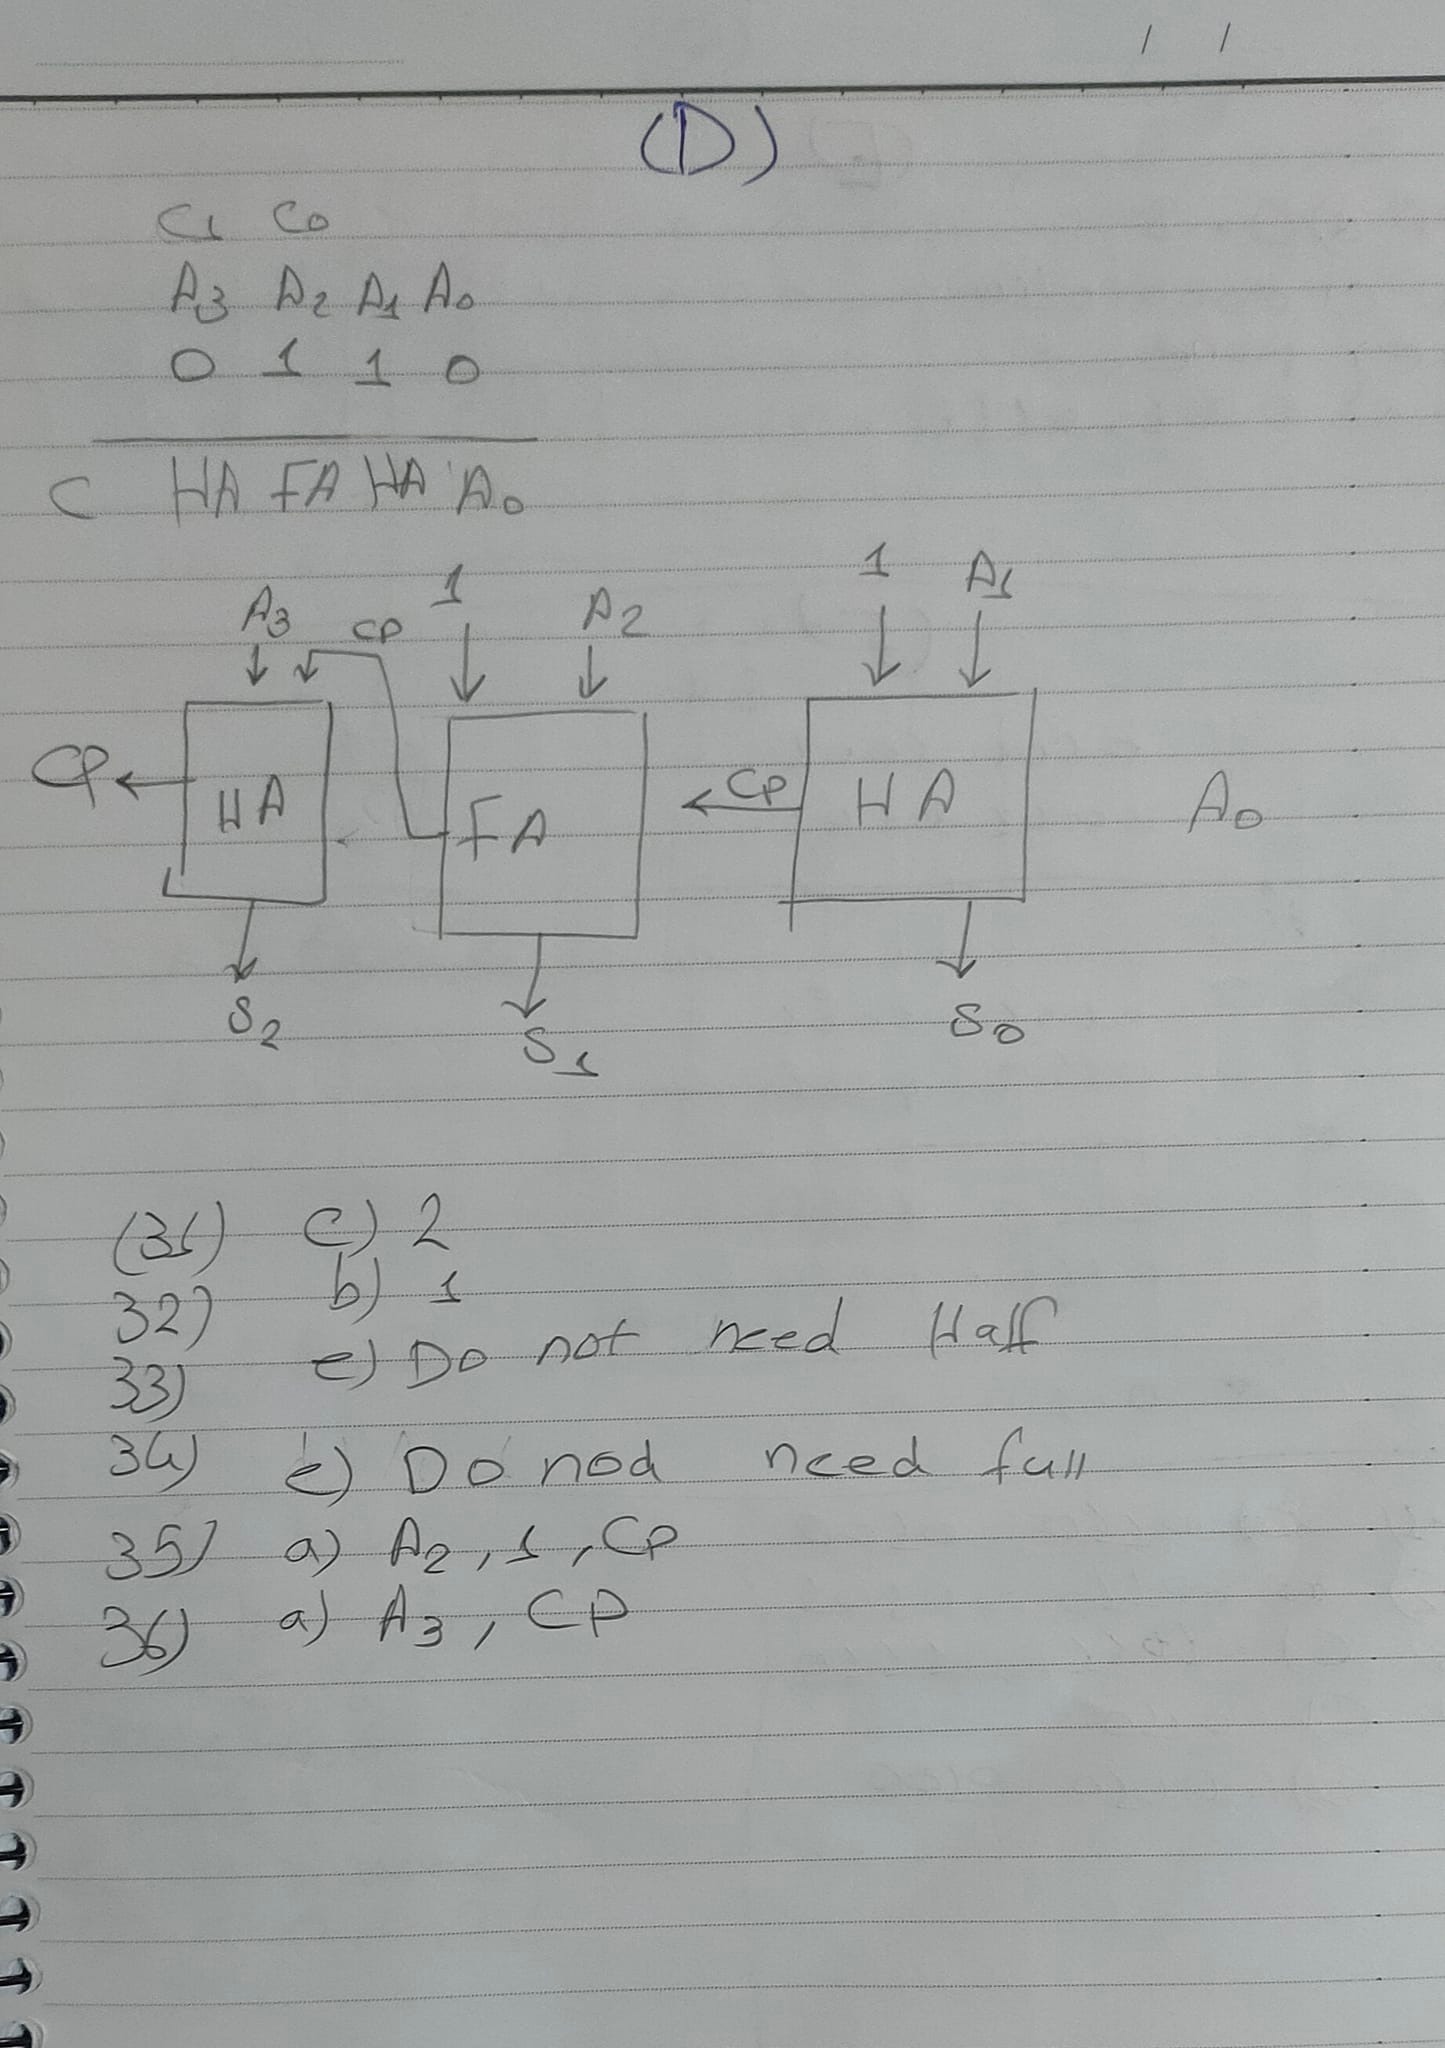 / /
(D)
C1 C0
A3 A2 A1 A0
0 1 1 0
C HA FA HA A0
1 A1
A3 CP 1 A2
CP HA FA CP HA A0
S2 S1 S0
(31) c) 2
32) b) 1
33) e) Do not need Half
34) e) Do nod need full
35) a) A2, 1, CP
36) a) A3, CP